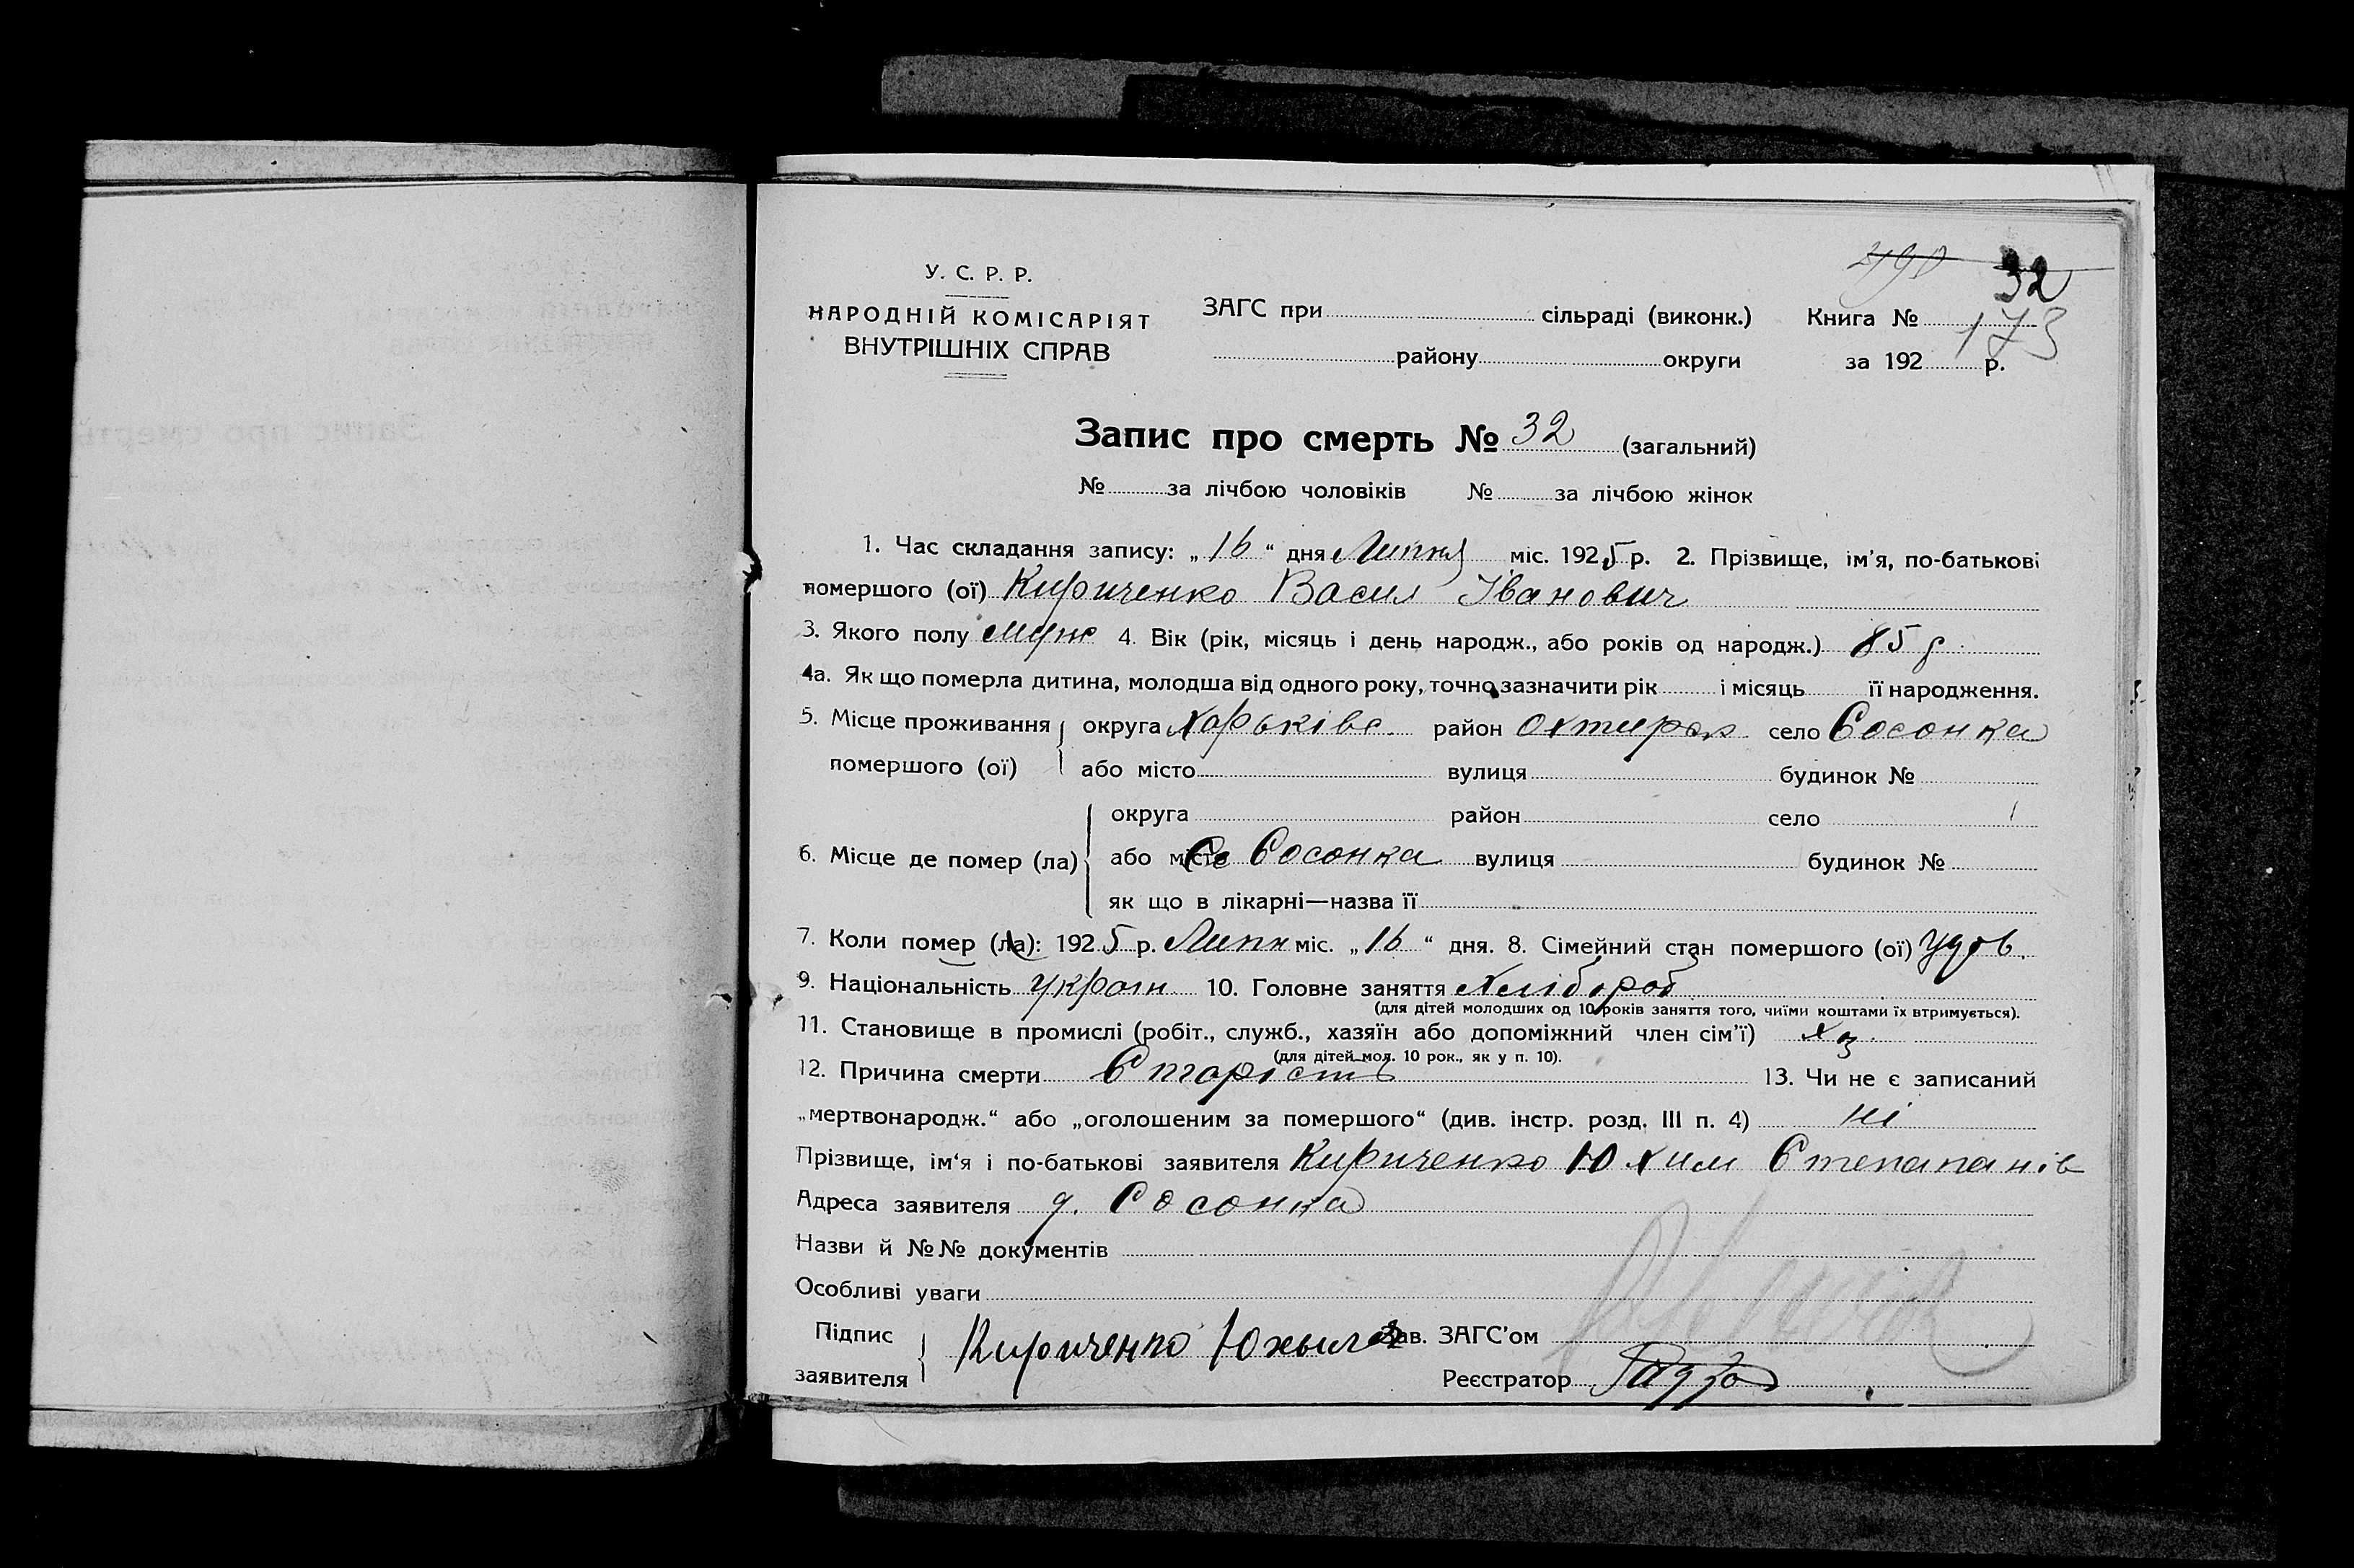 У. С. Р. Р.
НАРОДНІЙ КОМІСАРІЯТ
ВНУТРІШНІХ СПРАВ
ЗАГС при сільраді (виконк.)
району округи
32
Книга №
173
за 192 р.
Запис про смерть № 32 (загальний)
№ за лічбою чоловіків № за лічбою жінок
1. Час складання запису: „16“ дня Липня міс. 1925 р. 2. Прізвище, ім’я, по-батькові
помершого (ої) Кириченко Васил Іванович
3. Якого полу муж 4. Вік (рік, місяць і день народж., або років од народж.) 85 р
4а. Як що померла дитина, молодша від одного року, точно зазначити рік і місяць її народження.
5. Місце проживання помершого (ої) округа Харьківс. район Охтирск. село Сосонка
або місто вулиця будинок №
6. Місце де помер (ла) округа район село
або місто Сосонка вулиця будинок №
як що в лікарні—назва її
7. Коли помер (ла): 1925 р. Липн міс. „16“ дня. 8. Сімейний стан помершого (ої) удов.
9. Національність Украін 10. Головне заняття Хлібороб
(для дітей молодших од 10 років заняття того, чиїми коштами їх втримується).
11. Становище в промислі (робіт., служб., хазяїн або допоміжний член сім’ї) хз
(для дітей мол. 10 рок., як у п. 10).
12. Причина смерти Старість 13. Чи не є записаний
„мертвонародж.“ або „оголошеним за помершого“ (див. інстр. розд. III п. 4) ні
Прізвище, ім‘я і по-батькові заявителя Кириченко Юхим Степапанів
Адреса заявителя д. Сосонка
Назви й №№ документів
Особливі уваги
Підпис заявителя Кириченко Зав. ЗАГС’ом
Реєстратор